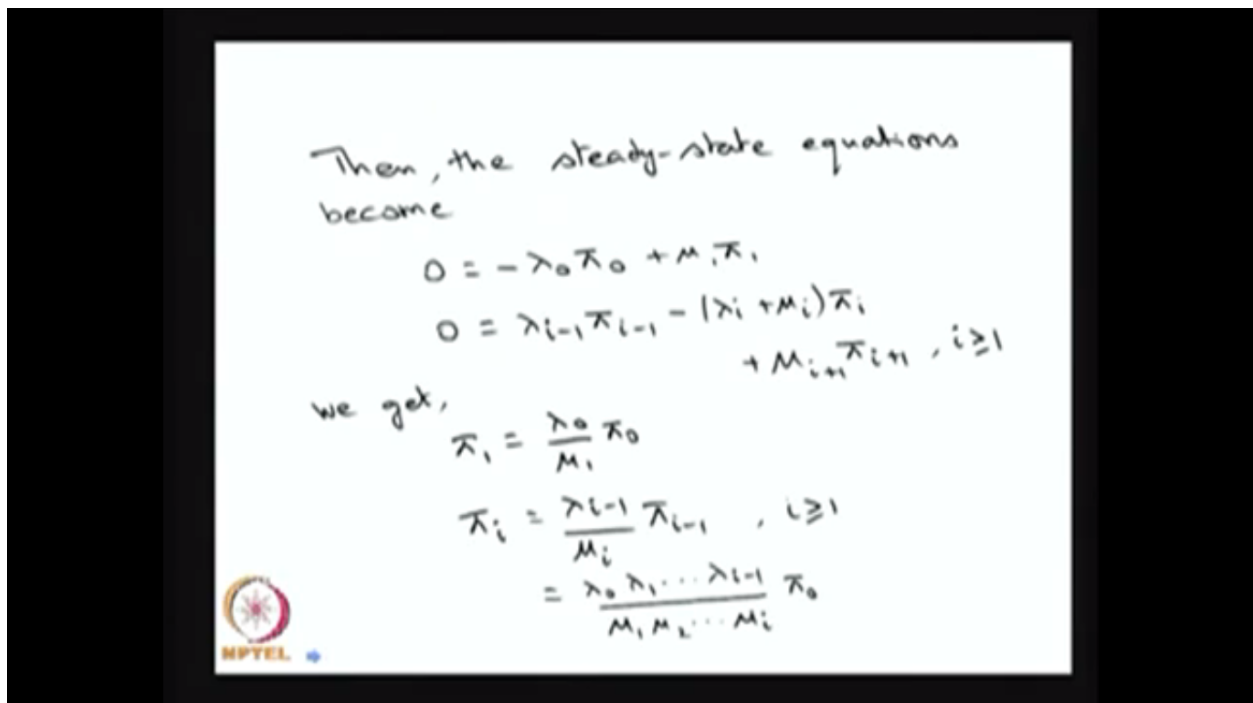 Then, the steady-state equations
become
0 = -λ₀π₀ + μ₁π₁
0 = λᵢ₋₁πᵢ₋₁ - (λᵢ + μᵢ)πᵢ
+ μᵢ₊₁πᵢ₊₁ , i≥1
we get,
π₁ = λ₀/μ₁ π₀
πᵢ = λᵢ₋₁/μᵢ πᵢ₋₁ , i≥1
= λ₀λ₁...λᵢ₋₁/μ₁μ₂...μᵢ π₀
NPTEL